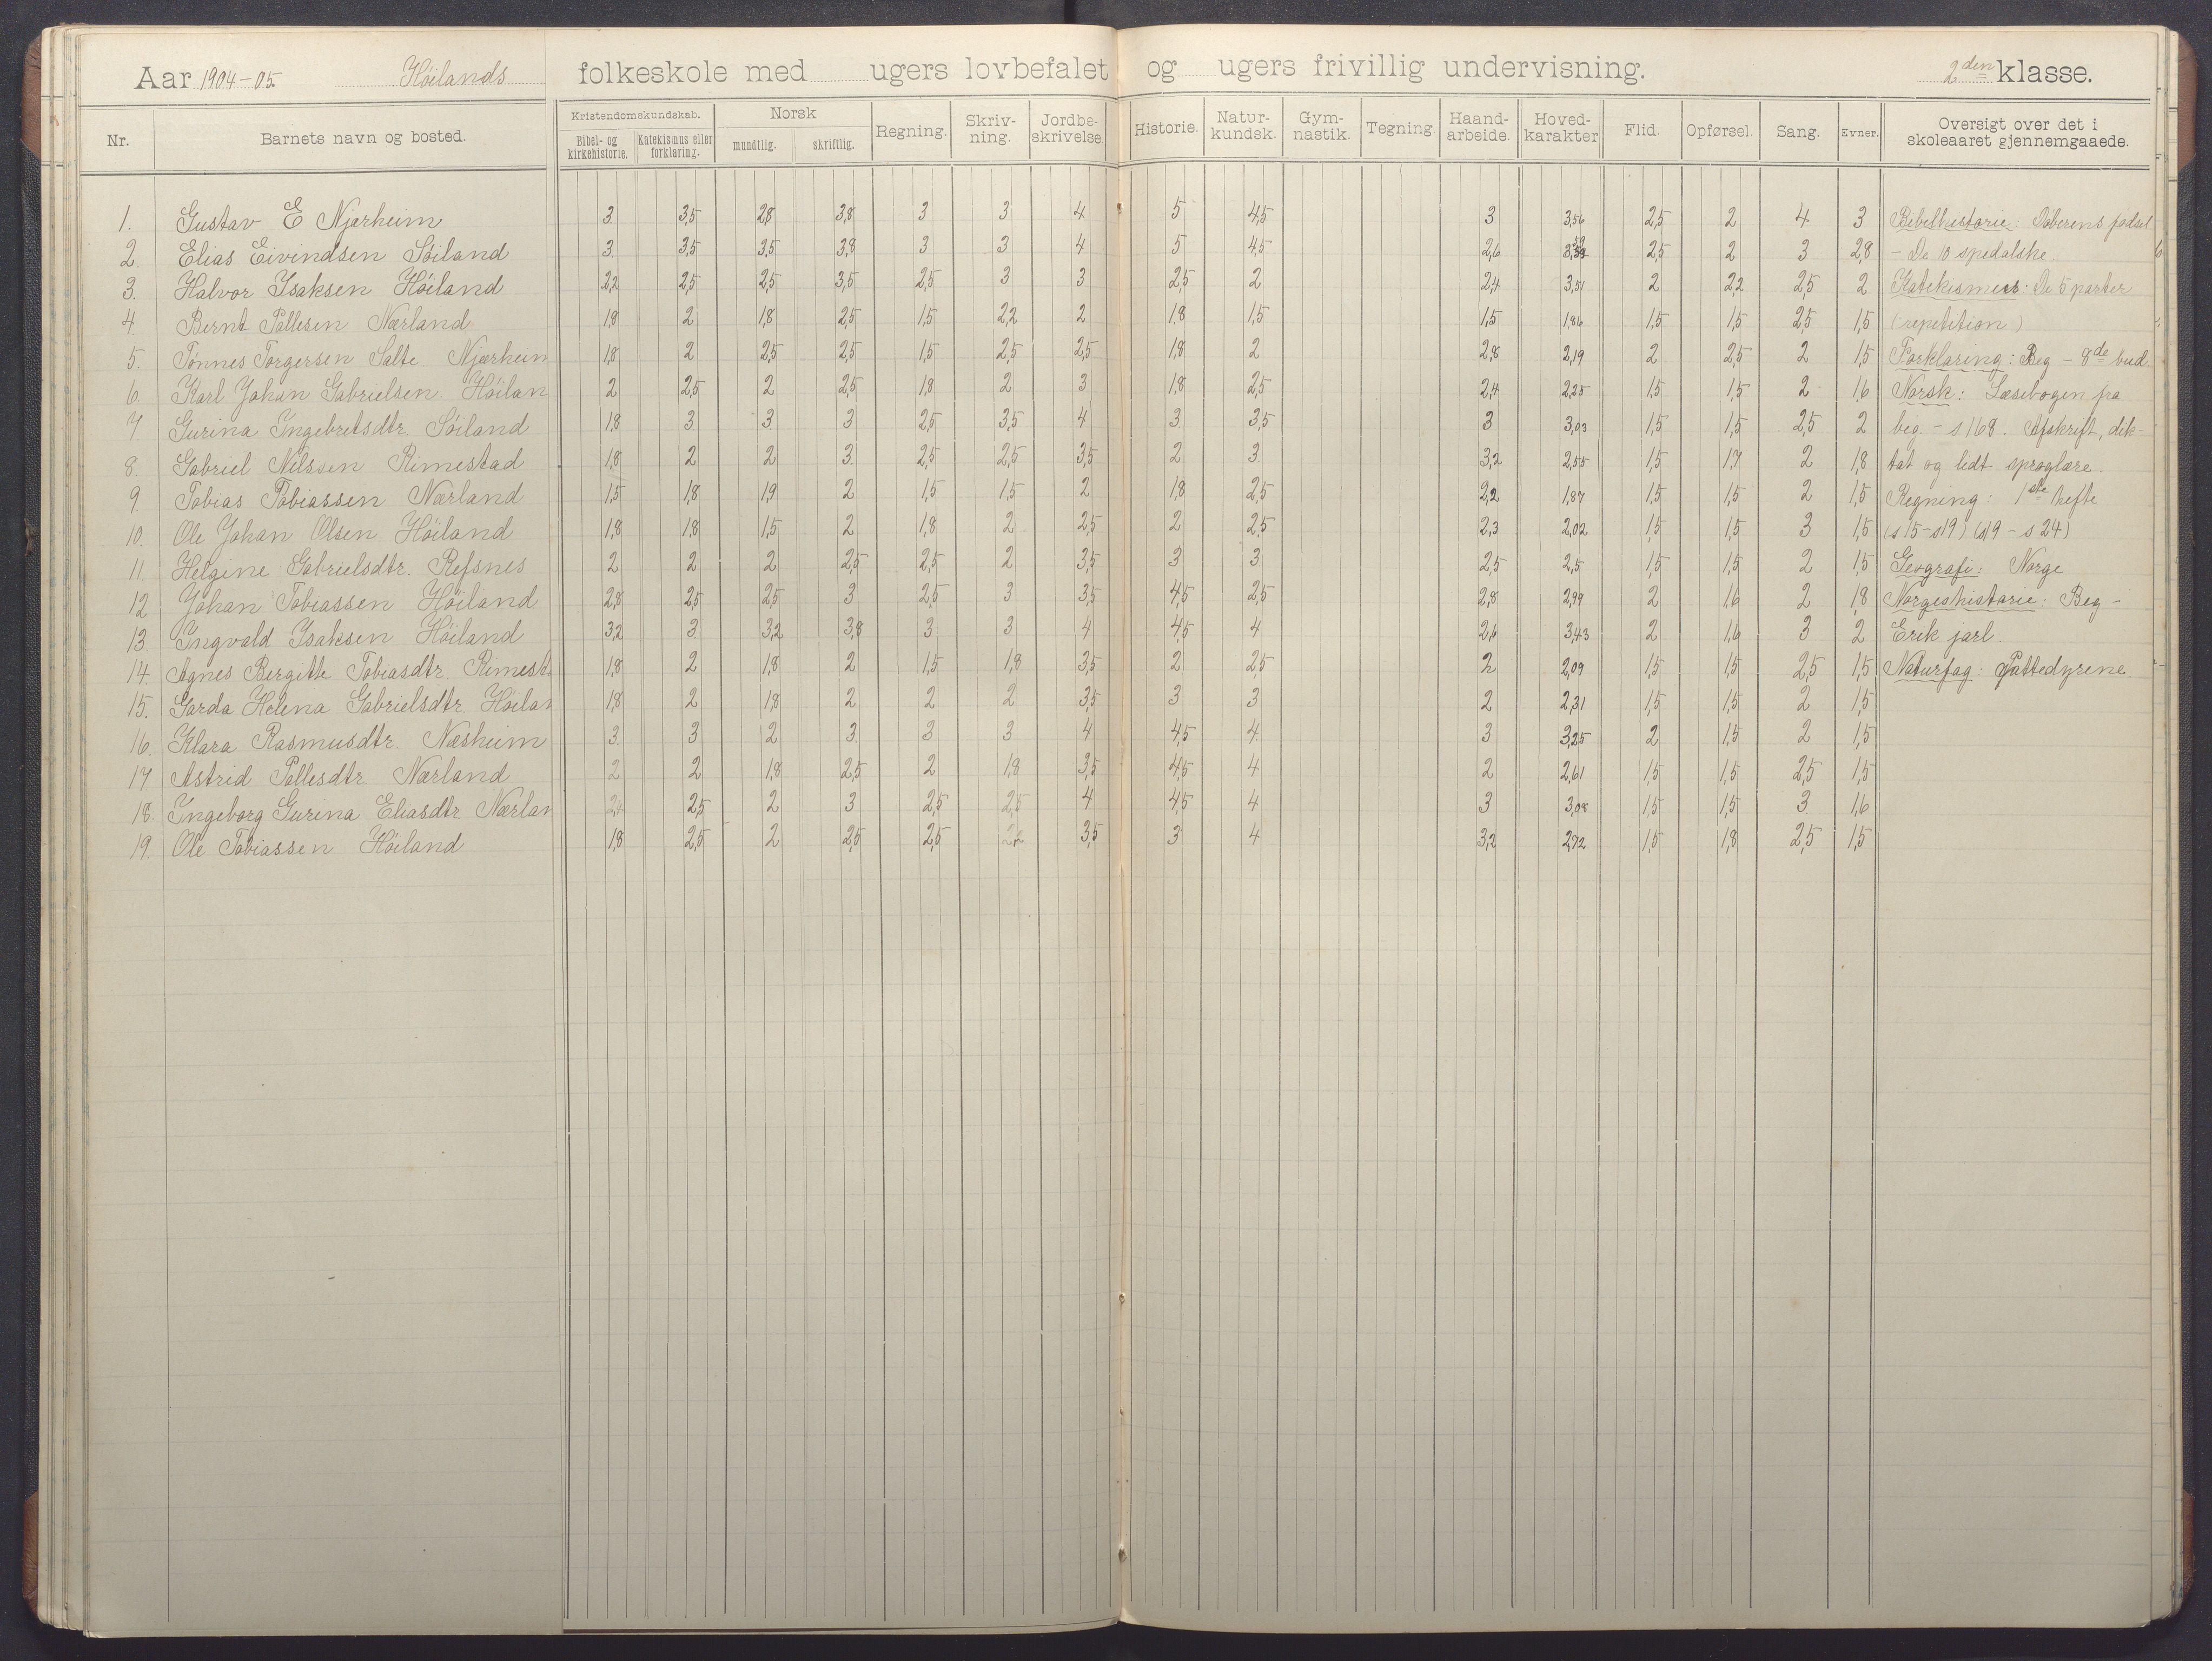 Aar 1904-05. Høilands folkeskole med ugers lovbefalet og ugers frivillig undervisning. 2den klasse.
Nr. Barnets navn og bosted. Kristendomskundskab. Bibel- og kirkehistorie. Katekismus eller forklaring. Norsk mundtlig. skriftlig. Regning. Skriv-ning. Jordbe-skrivelse Historie. Natur-kundsk. Gym-nastik. Tegning. Haand-arbeide. Hoved-karakter Flid. Opførsel. Sang. Evner. Oversigt over det i skoleaaret gjennemgaaede.
1. Gustav E Njærheim 3 3,5 2,8 3,8 3 3 4 5 4,5 3 3,56 2,5 2 4 3 Bibelhistorie: Døberens fødsel
2. Elias Eivindsen Söiland 3 3,5 3,5 3,8 3 3 4 5 4,5 2,6 3,59 2,5 2 3 2,8 - De 10 spedalske.
3. Halvor Isaksen Höiland 2,2 2,5 2,5 3,5 2,5 3 3 2,5 2 2,4 3,51 2 2,2 2,5 2 Katekismus: De 5 parter
4. Bernt Pallesen Nærland 1,8 2 1,8 2,5 1,5 2,2 2 1,8 1,5 1,5 1,86 1,5 1,5 2,5 1,5 (repetition)
5. Tönnes Torgersen Salte Njærheim 1,8 2 2,5 2,5 1,5 2,5 2,5 1,8 2 2,8 2,19 2 2,5 2 1,5 Forklaring: Beg - 8de bud
6. Karl Johan Gabrielsen Höilan 2 2,5 2 2,5 1,8 2 3 1,8 2,5 2,4 2,25 1,5 1,5 2 1,6 Norsk: Læsebogen fra
7 Gurina Ingebretsdtr. Söiland 1,8 3 3 3 2,5 3,5 4 3 3,5 3 3,03 1,5 1,5 2,5 2 beg. - s 168. Afskrift, dik-
8. Gabriel Nilssen Rimestad 1,8 2 2 3 2,5 2,5 3,5 2 3 3,2 2,55 1,5 1,7 2 1,8 tat og lidt sproglære.
9 Tobias Tobiassen Nærland 1,5 1,8 1,9 2 1,5 1,5 2 1,8 2,5 2,2 1,87 1,5 1,5 2 1,5 Regning: 1ste hefte
10. Ole Johan Olsen Höiland 1,8 1,8 1,5 2 1,8 2 2,5 2 2,5 2,3 2,02 1,5 1,5 3 1,5 (s 15-s19) (s19 - s 24)
11. Helgine Gabrielsdtr. Refsnes 2 2 2 2,5 2,5 2 3,5 3 3 2,5 2,5 1,5 1,5 2 1,5 Geografi: Norge
12 Johan Tobiassen Höiland 2,8 2,5 2,5 3 2,5 3 3,5 4,5 2,5 2,8 2,99 2 1,6 2 1,8 Norgeshistorie: Beg -
13. Ingvald Isaksen Höiland 3,2 3 3,2 3,8 3 3 4 4,5 4 2,6 3,43 2 1,6 3 2 Erik jarl.
14. Agnes Bergitte Tobiasdtr. Rimest 1,8 2 1,8 2 1,5 1,8 3,5 2 2,5 2 2,09 1,5 1,5 2,5 1,5 Naturfag: Pattedyrene
15. Garda Helena Gabrielsdtr. Höilan 1,8 2 1,8 2 2 2 3,5 3 3 2 2,31 1,5 1,5 2 1,5
16. Klara Rasmusdtr. Næsheim 3 3 2 3 3 3 4 4,5 4 3 3,25 2 1,5 2 1,5
17 Astrid Pallesdtr Nærland 2 2 1,8 2,5 2 1,8 3,5 4,5 4 2 2,61 1,5 1,5 2,5 1,5
18. Ingeborg Gurina Eliasdtr Nærlan 2,5 2 3 2,5 2,5 4 4,5 4 3 3,08 1,5 1,5 3 1,6
19. Ole Tobiassen Höiland 1,8 2,5 2 2,5 2,5 2,2 3,5 3 4 3,2 2,72 1,5 1,8 2,5 1,5